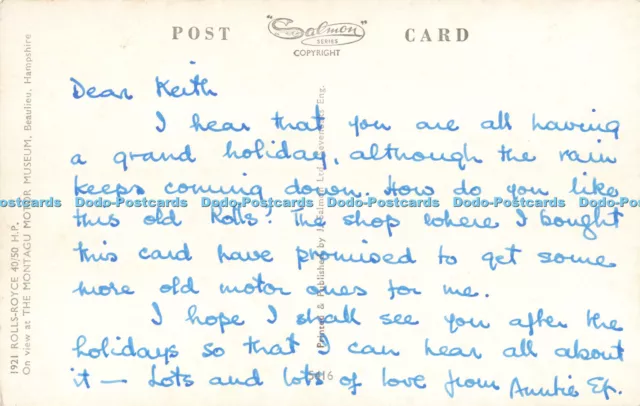 POST "Salmon" CARD
SERIES
COPYRIGHT
Dear Keith
I hear that you are all having
a grand holiday, although the rain
keeps coming down. How do you like
this old Rolls? The shop where I bought
this card have promised to get some
more old motor ones for me.
I hope I shall see you after the
holidays so that I can hear all about
it — Lots and lots of love from Auntie Ef.
1921 ROLLS-ROYCE 40/50 H.P.
On view at THE MONTAGU MOTOR MUSEUM, Beaulieu, Hampshire
Printed & Published by J. Salmon Ltd., Sevenoaks, Eng.
5416
Dodo-Postcards Dodo-Postcards Dodo-Postcards Dodo-Postcards Dodo-Postcards Dodo-Postcards